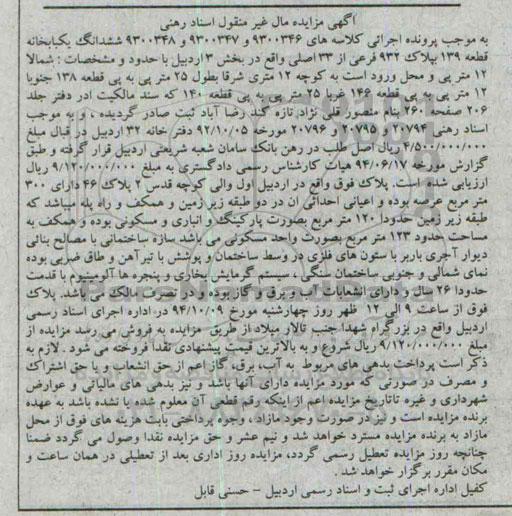 آگهی مزایده مال غیر منقول اسناد رهنی
به موجب پرونده اجرائی کلاسه های ۹۳۰۰۳۴۶ و ۹۳۰۰۳۴۷ و ۹۳۰۰۳۴۸ ششدانگ یکبابخانه
قطعه ۱۳۹ بپلاک ۹۳۲ فرعی از ۳۳ اصلی واقع در بخش ۳ اردبیل با حدود و مشخصات : شمالا
۱۲ متر پی و محل ورود است به کوچه ۱۲ متری شرقا بطول ۲۵ متر پی به پی قطعه ۱۳۸ جنوبا
۱۲ متر پی به پی قطعه ۱۴۶ غربا ۲۵ متر پی به پی قطعه ۱۴۰ که سند مالکیت ادر دفتر جلد
۲۰۶ صفحه ۲۶۰ بنام منصور قلی نژاد تازه کند رضا آباد ثبت صادر گردیده ، و به موجب
اسناد رهنی ۲۰۷۹۴ و ۲۰۷۹۵ و ۲۰۷۹۶ مورخه ۹۲/۱۰/۰۵ دفتر خانه ۳۲ اردبیل در قبال مبلغ
۴/۵۰۰/۰۰۰/۰۰۰ ریال اصل طلب در رهن بانک سامان شعبه شریعتی اردبیل قرار گرفته و طبق
گزارش مورخه ۹۴/۰۶/۱۷ هیات کارشناس رسمی دادگستری به مبلغ ۹/۱۲۰/۰۰۰/۰۰۰ ریال
ارزیابی شده است. پلاک فوق واقع در اردبیل اول والی کوچه قدس ۲ پلاک ۴۶ دارای ۳۰۰
متر مربع عرصه بوده و اعیانی احداثی آن در دو طبقه زیرزمین و همکف و راه پله میباشد که
طبقه زیر زمین حدودا ۱۲۰ متر مربع بصورت پارکینگ و انباری و مسکونی بوده و همکف به
مساحت حدود ۱۲۳ متر مربع بصورت واحد مسکونی می باشد سازه ساختمانی با مصالح بنائی
دیوار آجری باربر با ستون های فلزی در وسط ساختمان و پوشش با تیرآهن و طاق ضربی بوده
نمای شمالی و جنوبی ساختمان سنگی ، سیستم گرمایش بخاری و پنجره ها آلومینیوم با قدمت
حدودا ۲۶ سال و دارای انشعابات آب و برق و گاز بوده و در تصرف مالک می باشد. پلاک
فوق از ساعت ۹ الی ۱۲ ظهر روز چهارشنبه مورخ ۹۴/۱۰/۰۹ در اداره اجرای اسناد رسمی
اردبیل واقع در بزرگراه شهدا جنب تالار میلاد از طریق مزایده به فروش می رسد مزایده از
مبلغ ۹/۱۲۰/۰۰۰/۰۰۰ ریال شروع و به بالاترین قیمت پیشنهادی نقدا فروخته می شود . لازم به
ذکر است پرداخت بدهی های مربوط به آب، برق، گاز اعم از حق انشعاب و یا حق اشتراک
و مصرف در صورتی که مورد مزایده دارای آنها باشد و نیز بدهی های مالیاتی و عوارض
شهرداری و غیره تاتاریخ مزایده اعم از اینکه رقم قطعی آن معلوم شده یا نشده باشد به عهده
برنده مزایده است و نیز در صورت وجود مازاد ، وجوه پرداختی بابت هزینه های فوق از محل
مازاد به برنده مزایده مسترد خواهد شد و نیم عشر و حق مزایده نقدا وصول می گردد ضمنا
چنانچه روز مزایده تعطیل رسمی گردد، مزایده روز اداری بعد از تعطیلی در همان ساعت و
مکان مقرر برگزار خواهد شد .
کفیل اداره اجرای ثبت و اسناد رسمی اردبیل – حسنی قابل